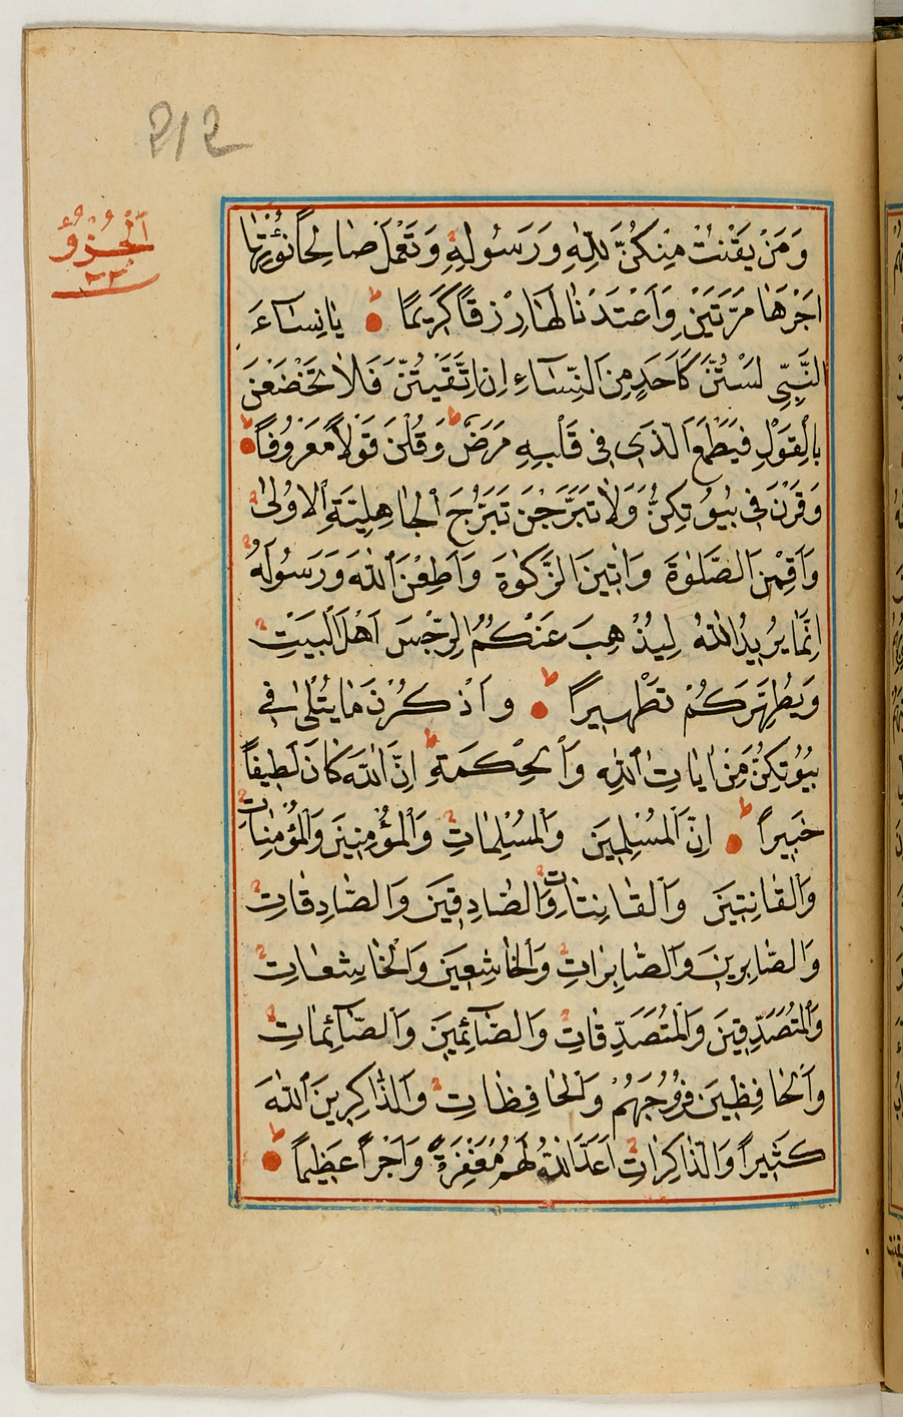 212
اَلْجُزْؤُ
٢٢
وَمَنْ يَقْنُتْ مِنْكُنَّ لِلّٰهِ وَرَسُولِهِ وَتَعْمَلْ صَالِحًا نُؤْتِهَا
اَجْرَهَا مَرَّتَيْنِ وَاَعْتَدْنَا لَهَا رِزْقًا كَرِيمًا ط يَا نِسَاءَ
النَّبِيِّ لَسْتُنَّ كَاَحَدٍ مِنَ النِّسَاءِ اِنِ اتَّقَيْتُنَّ فَلَا تَخْضَعْنَ
بِالْقَوْلِ فَيَطْمَعَ الَّذِى فِى قَلْبِهِ مَرَضٌ ط وَقُلْنَ قَوْلًا مَعْرُوفًا ط
وَقَرْنَ فِى بُيُوتِكُنَّ وَلَا تَبَرَّجْنَ تَبَرُّجَ الْجَاهِلِيَّةِ الْاُولٰى
وَاَقِمْنَ الصَّلٰوةَ وَاٰتِينَ الزَّكٰوةَ وَاَطِعْنَ اللّٰهَ وَرَسُولَهُ
اِنَّمَا يُرِيدُ اللّٰهُ لِيُذْهِبَ عَنْكُمُ الرِّجْسَ اَهْلَ الْبَيْتِ
وَيُطَهِّرَكُمْ تَطْهِيرًا ط وَاذْكُرْنَ مَا يُتْلٰى فِى
بُيُوتِكُنَّ مِنْ اٰيَاتِ اللّٰهِ وَالْحِكْمَةِ ط اِنَّ اللّٰهَ كَانَ لَطِيفًا
خَبِيرًا ط اِنَّ الْمُسْلِمِينَ وَالْمُسْلِمَاتِ وَالْمُؤْمِنِينَ وَالْمُؤْمِنَاتِ
وَالْقَانِتِينَ وَالْقَانِتَاتِ وَالصَّادِقِينَ وَالصَّادِقَاتِ
وَالصَّابِرِينَ وَالصَّابِرَاتِ وَالْخَاشِعِينَ وَالْخَاشِعَاتِ
وَالْمُتَصَدِّقِينَ وَالْمُتَصَدِّقَاتِ وَالصَّائِمِينَ وَالصَّائِمَاتِ
وَالْحَافِظِينَ فُرُوجَهُمْ وَالْحَافِظَاتِ وَالذَّاكِرِينَ اللّٰهَ
كَثِيرًا وَالذَّاكِرَاتِ اَعَدَّ اللّٰهُ لَهُمْ مَغْفِرَةً وَاَجْرًا عَظِيمًا ط